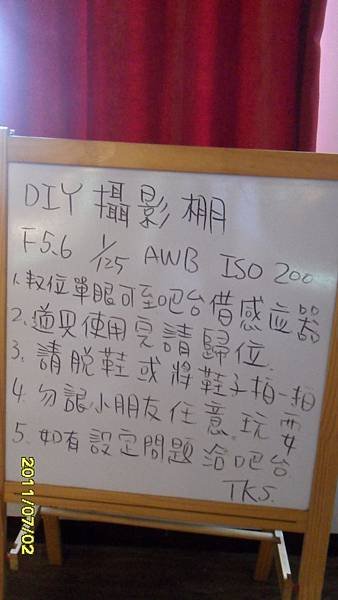 DIY 攝影棚
F5.6 1/125 AWB ISO 200
1. 数位單眼可至吧台借感应器
2. 道具使用完請歸位.
3. 請脱鞋或將鞋子拍一拍
4. 勿讓小朋友任意玩耍
5. 如有設定問題給吧台
TKS.
2011/07/02